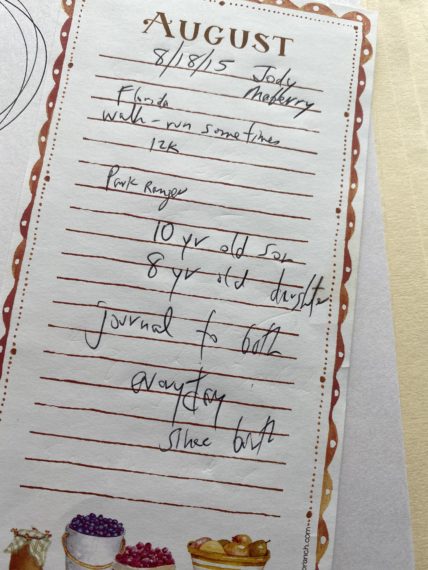 AUGUST
8/18/15 Jody
Maberry
Florida
walk-run sometimes
12K
Park Ranger
10 yr old son
8 yr old daughter
journal to both
everyday
since birth
branch.com